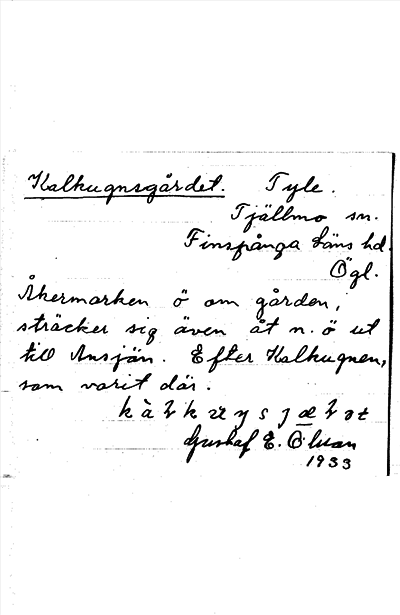 Kalkugnsgärdet. Tyle.
Tjällmo sn.
Finspånga läns hd.
Ögl.
Åkermarken ö om gården,
sträcker sig även åt n. ö ut
till Ansjön. Efter Kalkugnen,
som varit där.
Gustaf E.
1933